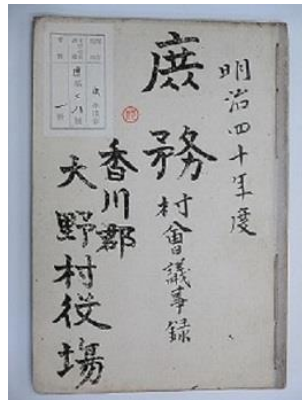 明治四十年度
庶務
村會議事録
香川郡
大野村役場